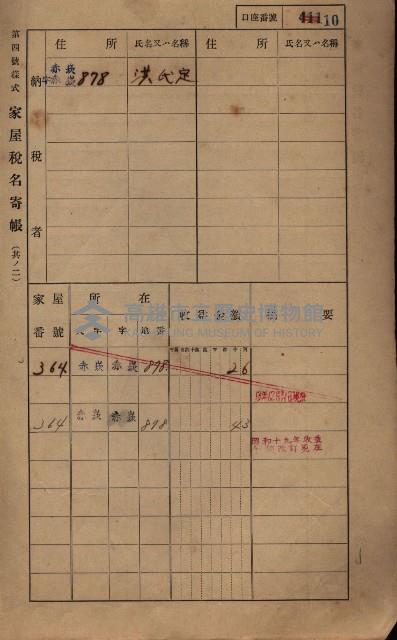 口座番號 411 10
第四號樣式 家屋稅名寄帳 (共ノ二)
住所 氏名又ハ名稱 住所 氏名又ハ名稱
納稅者
赤崁
字赤崁 878 洪氏定
家屋番號 所在 收益金額 摘要
大字 字 地番
364 赤崁 赤崁 898 26
364 赤崁 赤崁 898 43
昭和十九年收益
改訂
高雄市立歷史博物館
KAOHSIUNG MUSEUM OF HISTORY